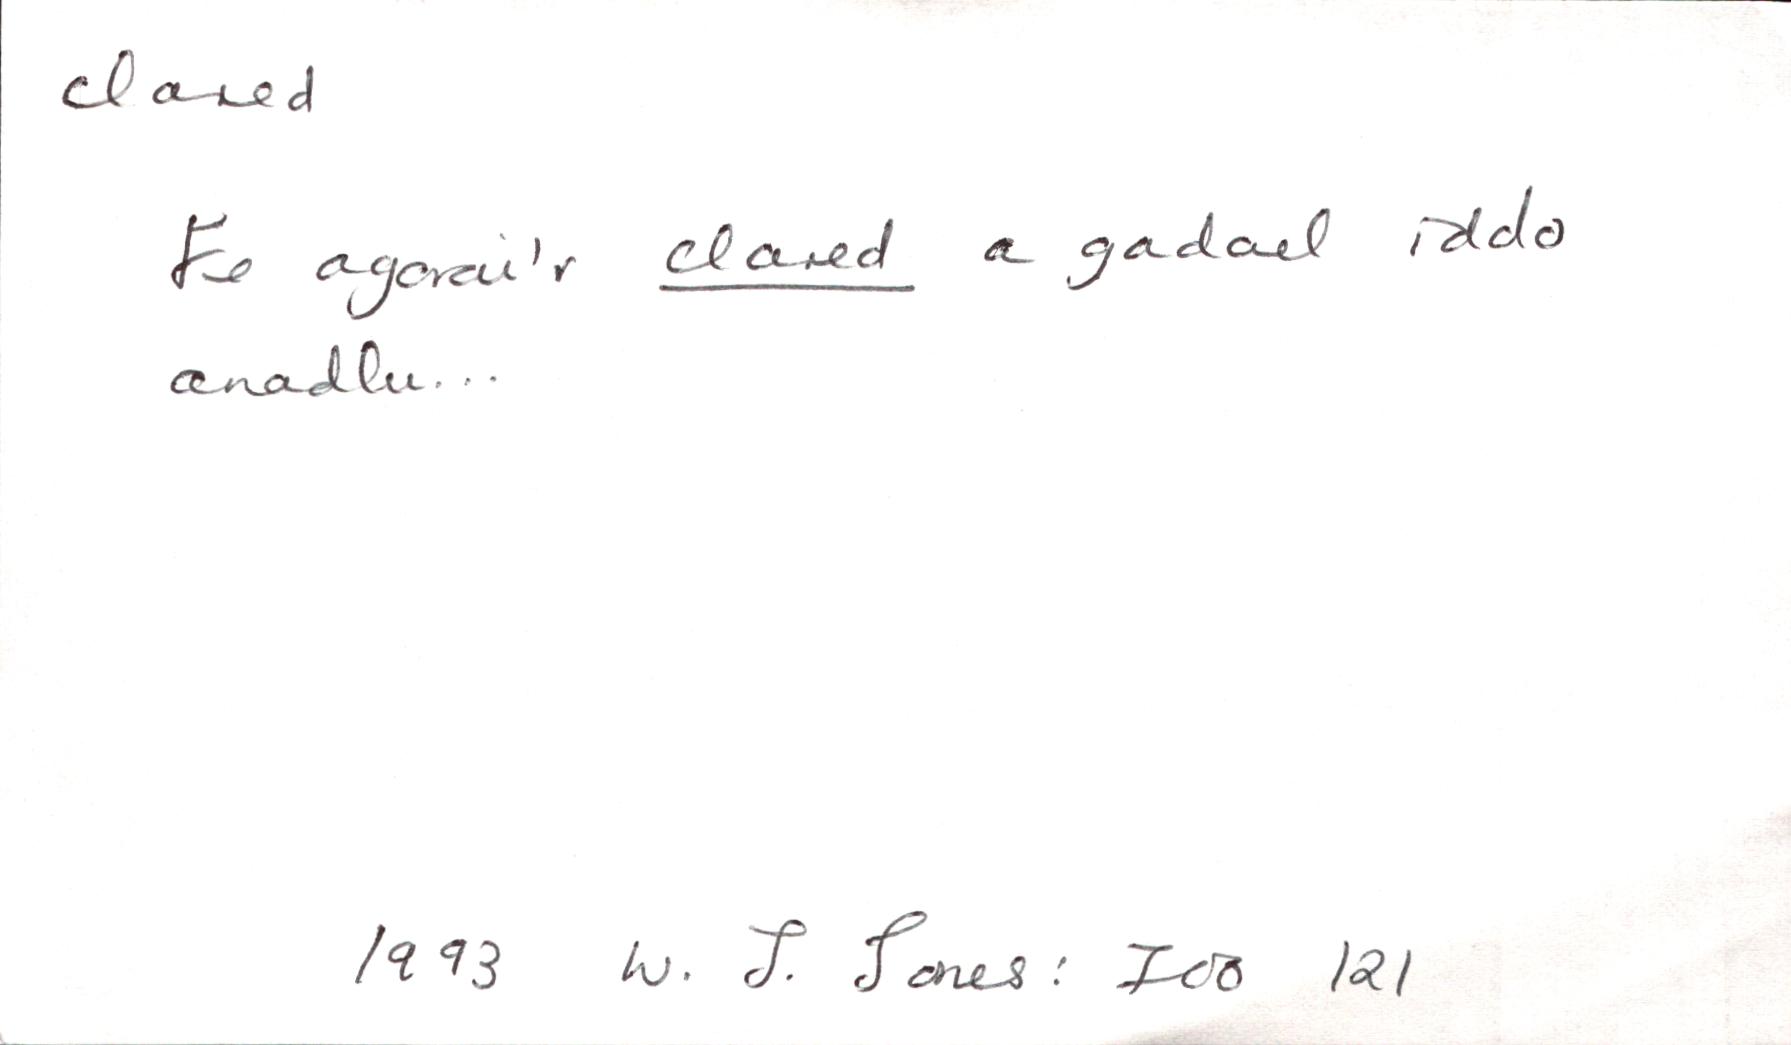 clared
Fe agorai'r clared a gadael iddo
anadlu...
1993 W. J. Jones: IOO 121